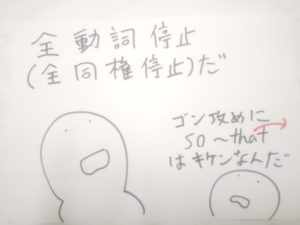 全動詞停止
(全同権停止)だ
ゴン攻めに
so～that
はキケンなんだ